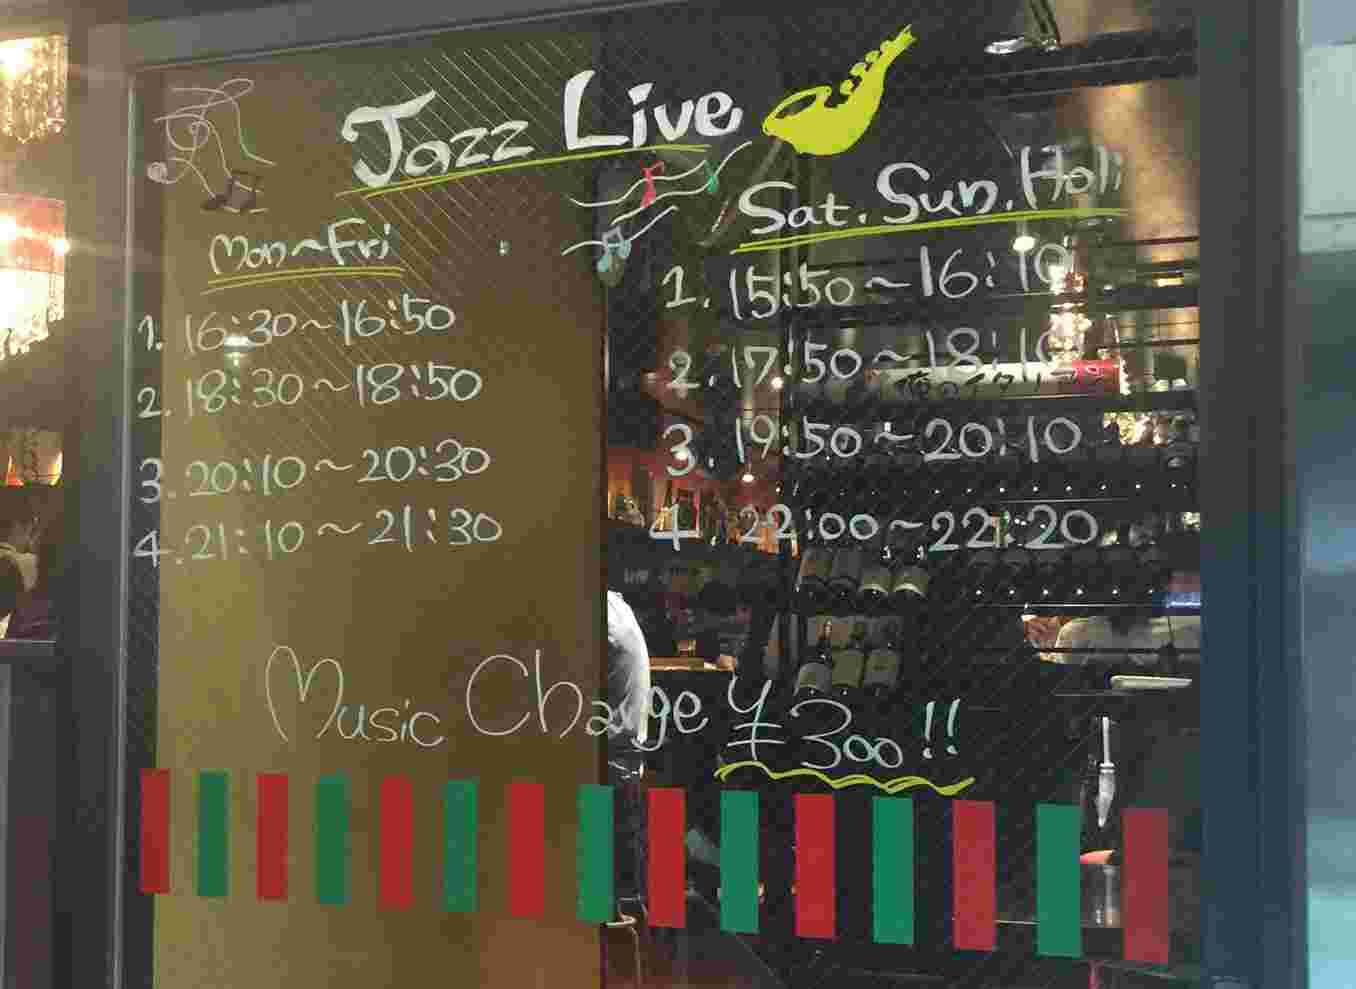 Jazz Live
Mon~Fri
1. 16:30~16:50
2. 18:30~18:50
3. 20:10~20:30
4. 21:10~21:30
Sat. Sun. Holi
1. 15:50~16:10
2. 17:50~18:10
3. 19:50~20:10
4. 22:00~22:20
Music Charge ¥300!!